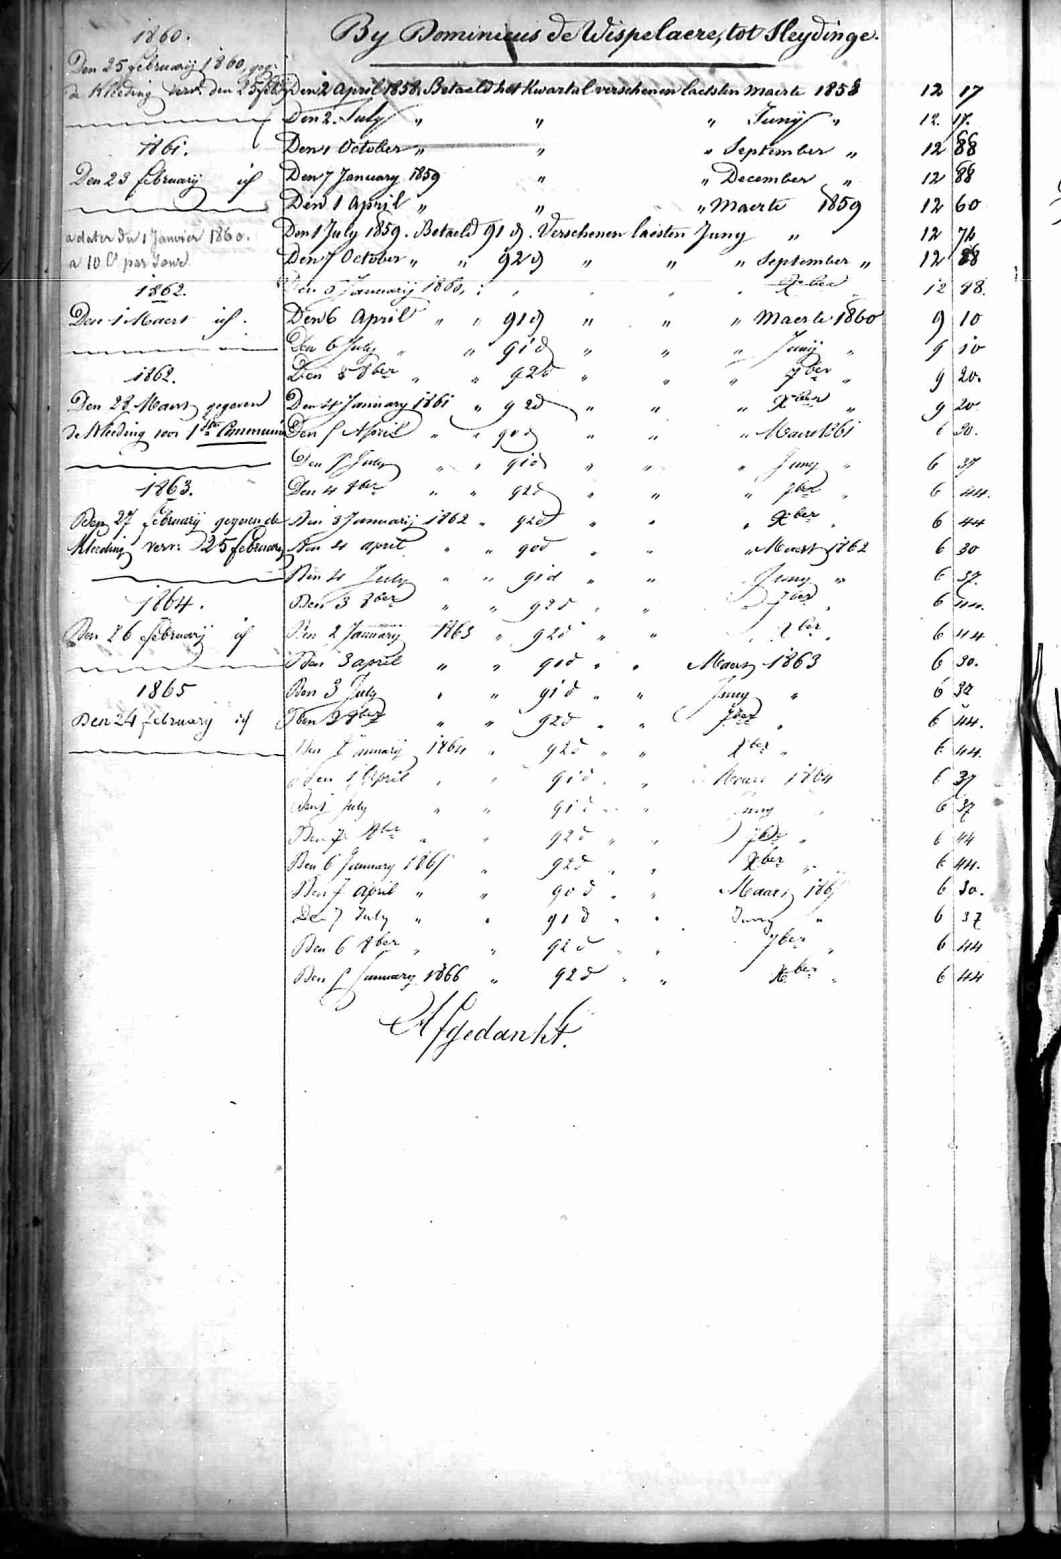 By Dominicus de Wispelaere, tot Sleydinge.
1860.
Den 25 februarij 1860, geg:
de Kleeding verv: den 25 feb
1861.
Den 23 februarij id
a dater du 1 Janvier 1860.
a 10 Cs par Jour.
1862.
Den 1 Maert id.
1862.
Den 28 Maert gegeven
de Kleeding voor 1ste Communie
1863.
Den 27 februarij gegeven de
Kleeding verv: 25 februarij
1864.
Den 26 februarij id
1865
Den 24 february id
Den 2 April 1858. Betaeld het Kwartal verschenen laetsten maerte 1858 12 17
Den 2. July " " " Junij " 12. 17.
Den 1 October " " " September " 12 88
Den 7 January 1859 " " December " 12 88
Den 1 April " " " Maerte 1859 12 60
Den 1 July 1859. Betaeld 91 d. Verschenen laesten Juny " 12 74
Den 7 October " " 92 d " " " September " 12 88
Den 5 Januarij 1860, " " " " Xber 12 88.
Den 6 April " " 91 d " " " Maerte 1860 9 10
Den 6 July " " 91 d " " " Junij " 9 10
Den 5 8ber " " 92 d " " " 7ber " 9 20.
Den 4 January 1861 " 92 d " " " Xber " 9 20
Den 5 April " " 90 d " " " Maert 1861 6 30.
Den 5 July " " 91 d " " " Juny " 6 37
Den 4 8ber " " 92 d " " " 7ber " 6 44.
Den 3 Januarij 1862 " 92 d " " " Xber " 6 44
Den 4 april " " 90 d " " " Maert 1862 6 30
Den 4 July " " 91 d " " Juny " 6 37.
Den 3 8ber " " 92 d " " 7ber " 6 44.
Den 2 January 1863 " 92 d " " " Xber " 6 44
Den 3 april " " 90 d " " Maert 1863 6 30.
Den 3 July " " 91 d " " Juny " 6 37
Den 2 8ber " " 92 d " " 7ber " 6 44.
Den January 1864 " 92 d " " Xber " 6 44.
Den 1 April " " 91 d " " Maert 1864 6 37
Den 1 July " " 91 d " " Juny " 6 37
Den 7 8ber " " 92 d " " 7ber " 6 44
Den 6 January 1865 " 92 d " " Xber " 6 44.
Den 7 April " " 90 d " " Maert 1865 6 30.
Den 7 July " " 91 d " " Juny " 6 37
Den 6 8ber " " 92 d " " 7ber " 6 44
Den 5 January 1866 " 92 d " " Xber " 6 44
Afgedankt.